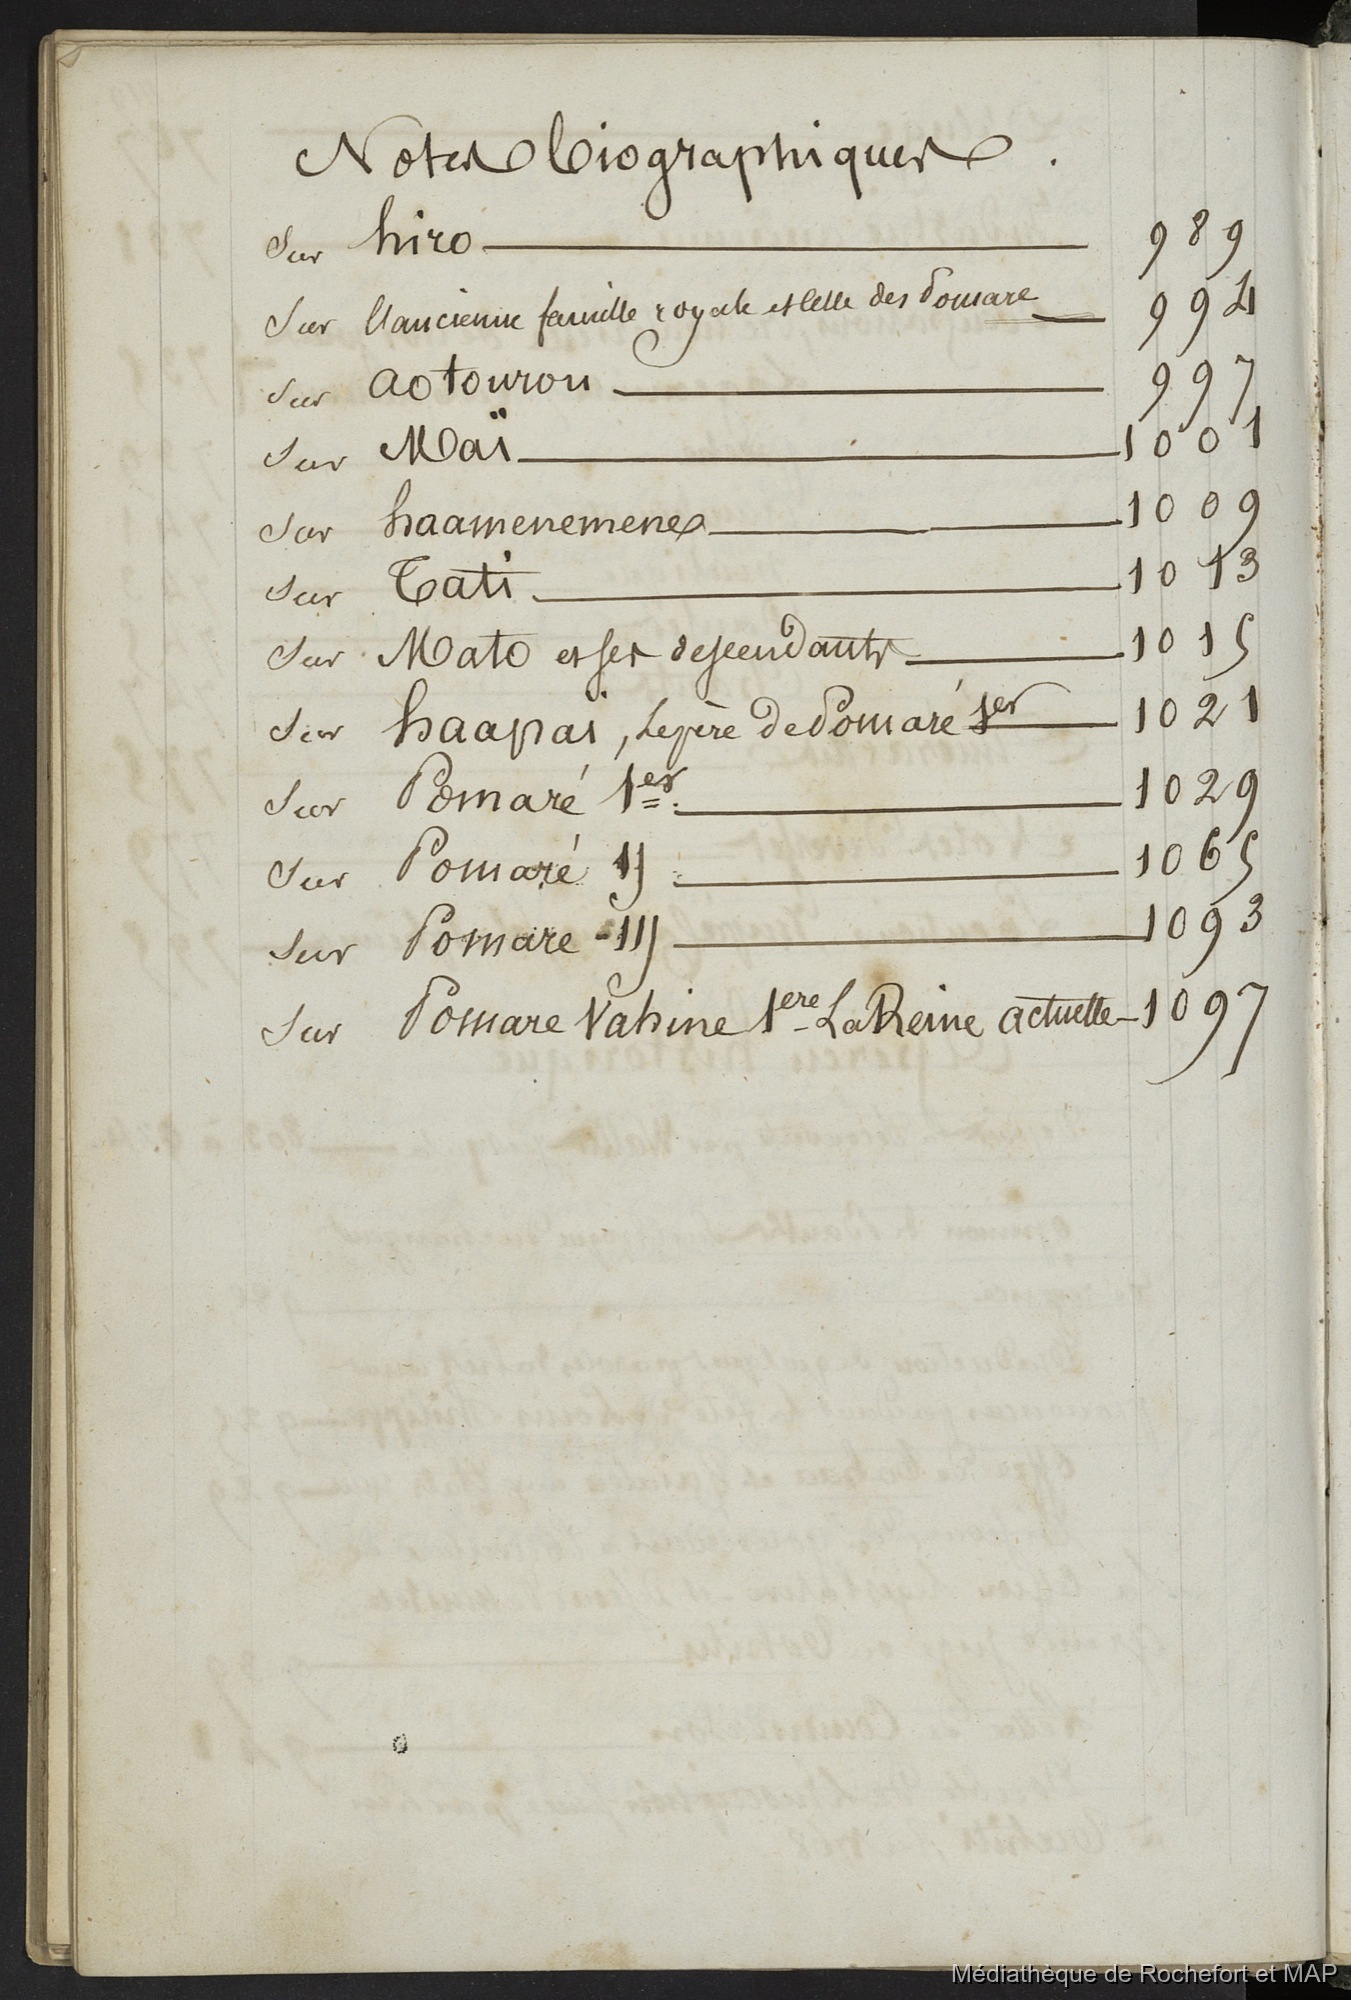 Notes biographiques.
Sur hiro 989
Sur l'ancienne famille royale et celle des Pomare 994
Sur aotourou 997
Sur Maï 1001
Sur haamenemene 1009
Sur Tati 1013
Sur Mato et ses descendants 1015
Sur haapai, le père de Pomaré 1er 1021
Sur Pomaré 1er 1029
Sur Pomaré IJ 1065
Sur Pomare - IIJ 1093
Sur Pomare Vahine 1ere La Reine actuelle 1097
Médiathèque de Rochefort et MAP